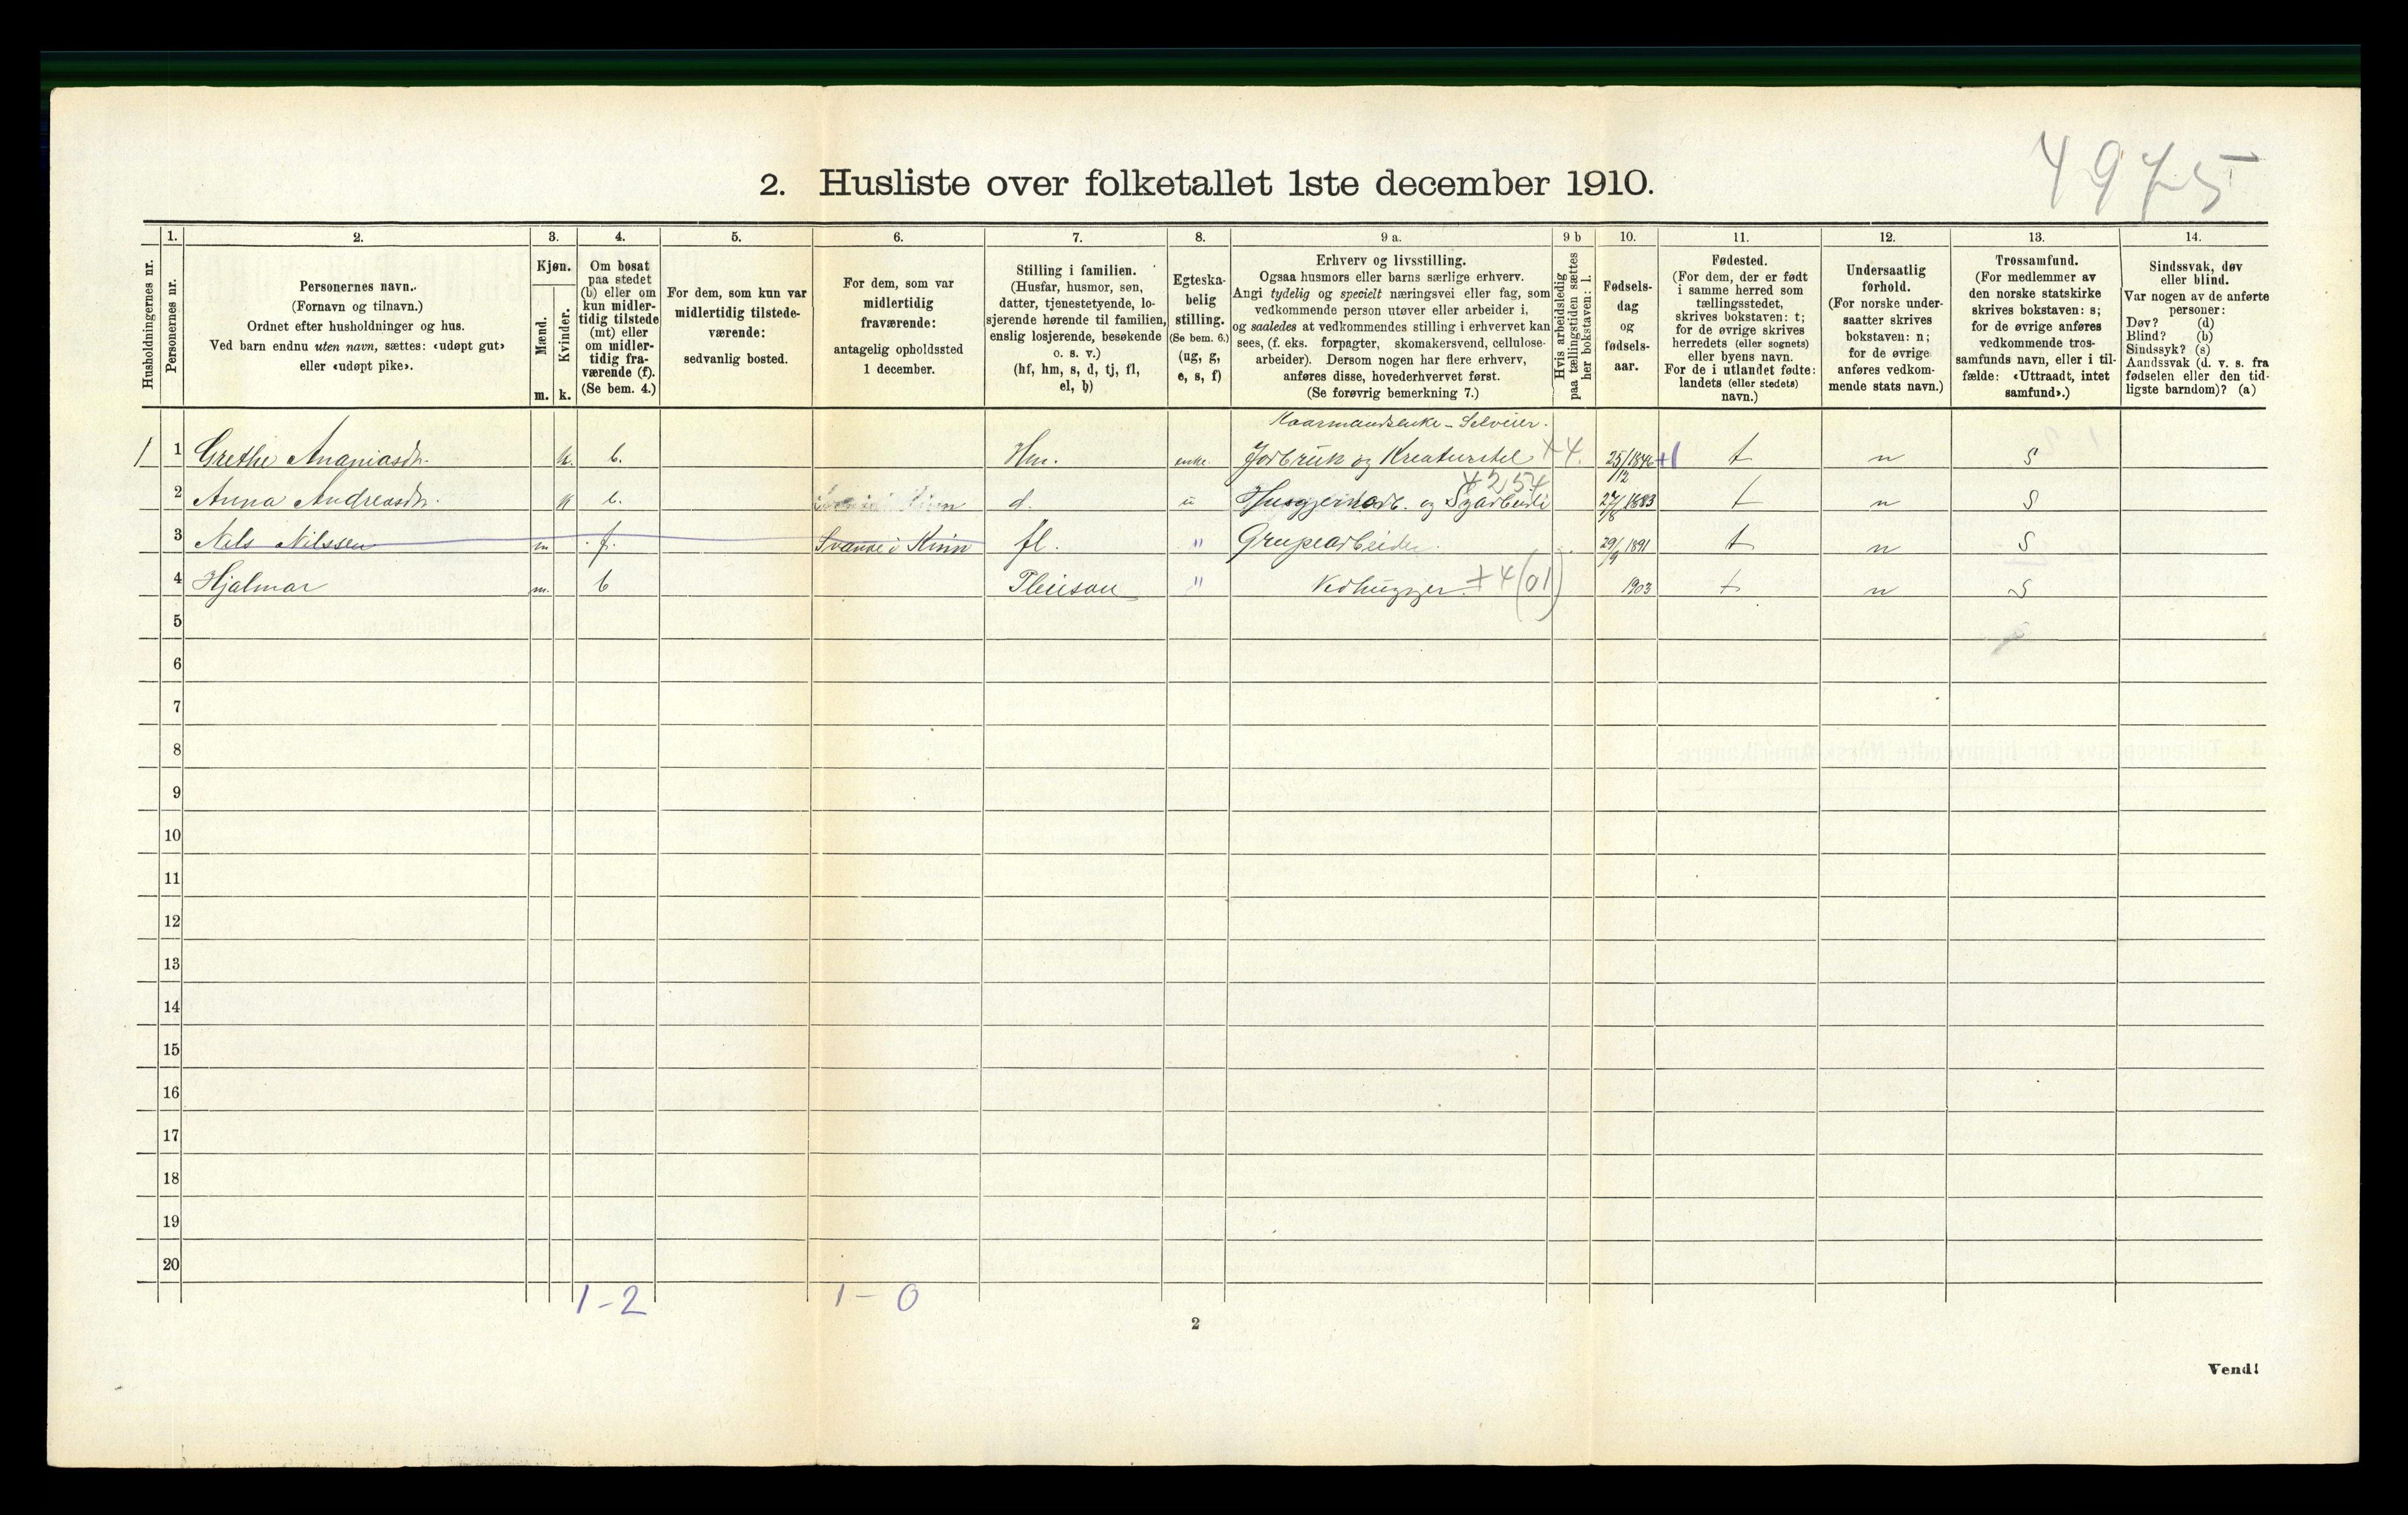 4975
2. Husliste over folketallet 1ste december 1910.
Husholdningernes nr.
1. Personernes nr.
2. Personernes navn.
(Fornavn og tilnavn.)
Ordnet efter husholdninger og hus.
Ved barn endnu uten navn, sættes: «udøpt gut»
eller «udøpt pike».
3. Kjøn.
Mænd. m.
Kvinder. k.
4. Om bosat
paa stedet
(b) eller om
kun midler-
tidig tilstede
(mt) eller
om midler-
tidig fra-
værende (f).
(Se bem. 4.)
5. For dem, som kun var
midlertidig tilstede-
værende:
sedvanlig bosted.
6. For dem, som var
midlertidig
fraværende:
antagelig opholdssted
1 december.
7. Stilling i familien.
(Husfar, husmor, søn,
datter, tjenestetyende, lo-
sjerende hørende til familien,
enslig losjerende, besøkende
o. s. v.)
(hf, hm, s, d, tj, fl,
el, b)
8. Egteska-
belig
stilling.
(Se bem. 6.)
(ug, g,
e, s, f)
9 a. Erhverv og livsstilling.
Ogsaa husmors eller barns særlige erhverv.
Angi tydelig og specielt næringsvei eller fag, som
vedkommende person utøver eller arbeider i,
og saaledes at vedkommendes stilling i erhvervet kan
sees, (f. eks. forpagter, skomakersvend, cellulose-
arbeider). Dersom nogen har flere erhverv,
anføres disse, hovederhvervet først.
(Se forøvrig bemerkning 7.)
9 b Hvis arbeidsledig
paa tællingstiden sættes
her bokstaven: l.
10. Fødsels-
dag
og
fødsels-
aar.
11. Fødested.
(For dem, der er født
i samme herred som
tællingsstedet,
skrives bokstaven: t;
for de øvrige skrives
herredets (eller sognets)
eller byens navn.
For de i utlandet fødte:
landets (eller stedets)
navn.)
12. Undersaatlig
forhold.
(For norske under-
saatter skrives
bokstaven: n;
for de øvrige
anføres vedkom-
mende stats navn.)
13. Trossamfund.
(For medlemmer av
den norske statskirke
skrives bokstaven: s;
for de øvrige anføres
vedkommende tros-
samfunds navn, eller i til-
fælde: «Uttraadt, intet
samfund».)
14. Sindssvak, døv
eller blind.
Var nogen av de anførte
personer:
Døv? (d)
Blind? (b)
Sindssyk? (s)
Aandssvak (d. v. s. fra
fødselen eller den tid-
ligste barndom)? (a)
Kaarmandsenke - Selveier.
1 1 Grethe Ananiasdr. k. b. Hm. enke. Jordbruk og Kreaturstel +4. 25/12 1846 +1 t n S
+254
2 Anna Andreasdr. k b. d. u og Syarbeide 27/8 1883 t n S
3 Nels Nilssen m f. Svanøe i Kinn fl. " Grupearbeider. 29/9 1891 t n S
4 Hjalmar m. b Pleiesøn " Vedhugger +4(01) 1903 t n S
5
6
7
8
9
10
11
12
13
14
15
16
17
18
19
20
1-2 1-0
2
Vend!